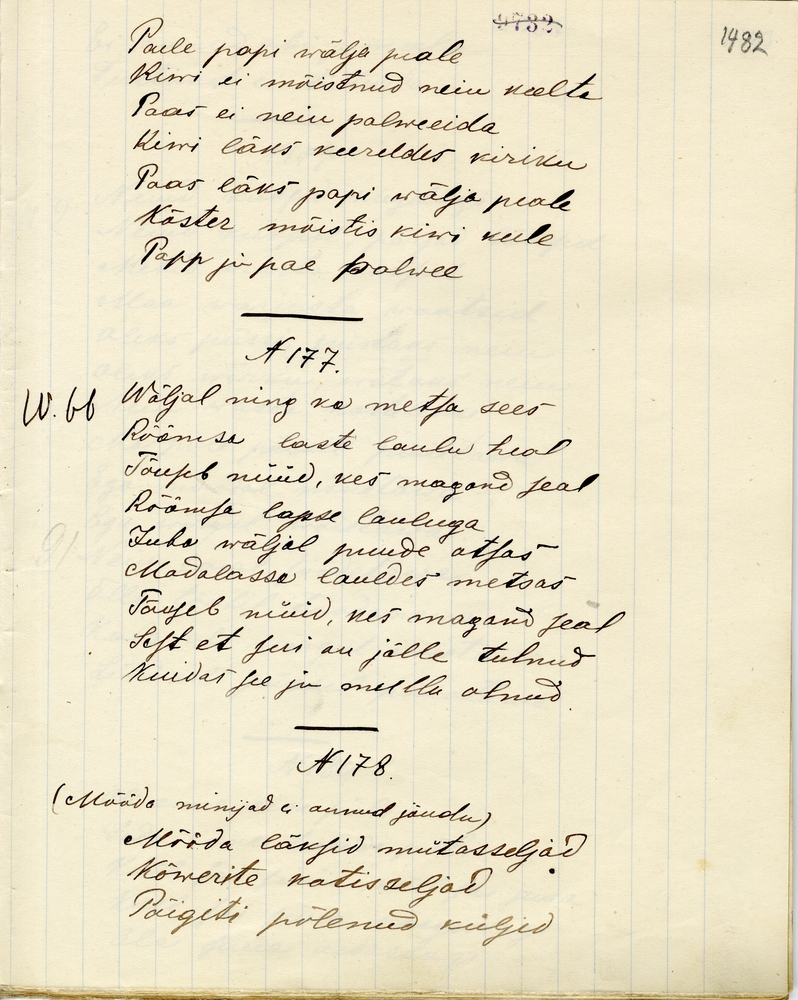 9732
1482
Paele papi wälja peale
Kiwi ei mõistnud neiu keelta
Paas ei neiu palweeida
Kiwi läks keereldes kiriku
Paas läks papi wälja peale
Köster mõistis kiwi keele
Papp ju pae palwee
N 177.
W. 66
Wäljal ning ka metsa sees
Rõõmsa laste laulu heal
Tõuseb nüüd, kes magand seal
Rõõmsa lapse lauluga
Juba wäljal puude otsas
Madalasse lauldes metsas
Tõuseb nüüd, kes magand seal
Sest et sui on jälle tulnud
Kuidas see ju meilla olnud.
N 178.
(Mööda minijad ei annud jõudu)
Mööda läksid mütasseljad
Kõwerite katisseljad
Päigiti põlenud küljed